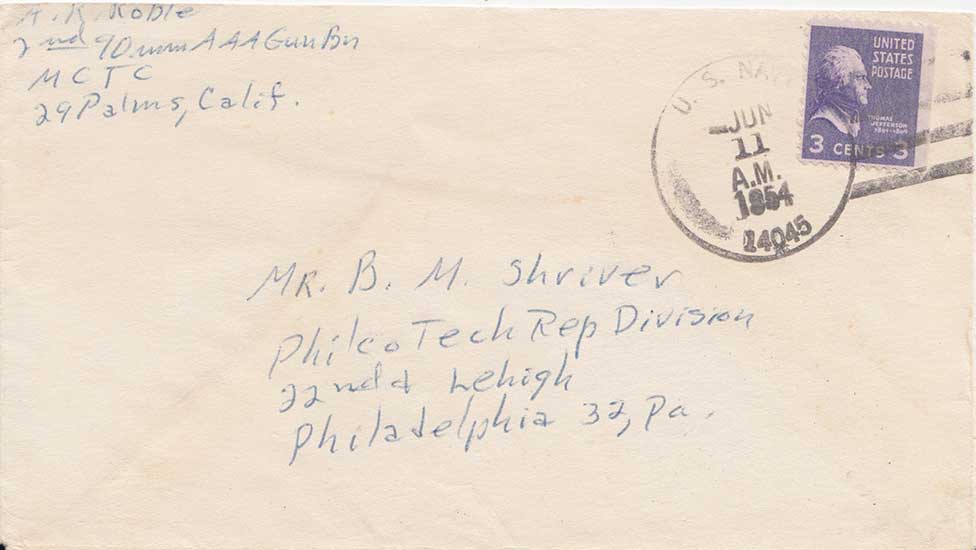 A. R. Roble
2nd 90mm AAA Gun Bn
M C T C
29 Palms, Calif.
U. S. NAVY
JUN
11
A.M.
1954
14045
UNITED
STATES
POSTAGE
THOMAS
JEFFERSON
1801-1809
3 CENTS 3
Mr. B. M. Shriver
Philco Tech Rep Division
22nd & Lehigh
Philadelphia 32, Pa.